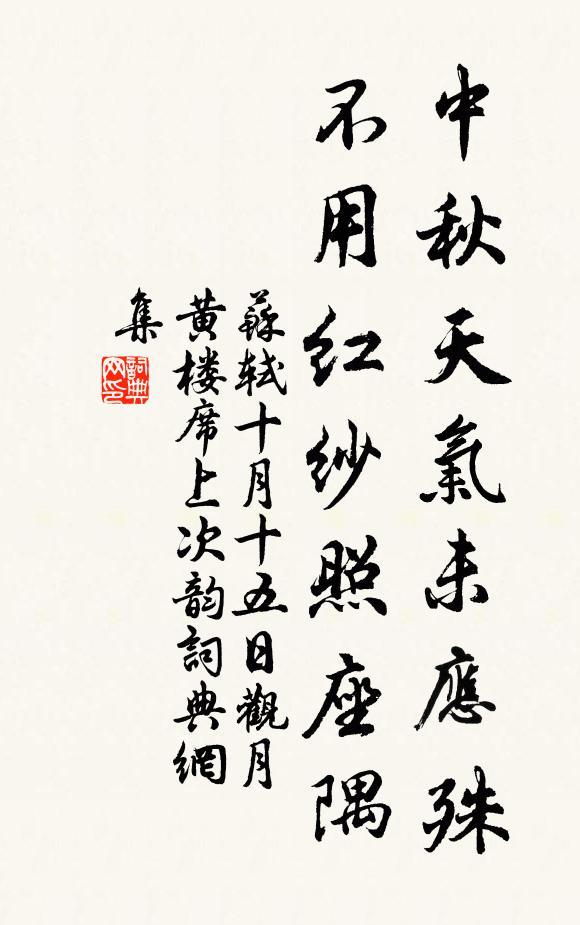 中秋天氣未應殊
不用紅紗照座隅
蘇軾十月十五日觀月
黃楼席上次韵詞典網
集
詞典
网印